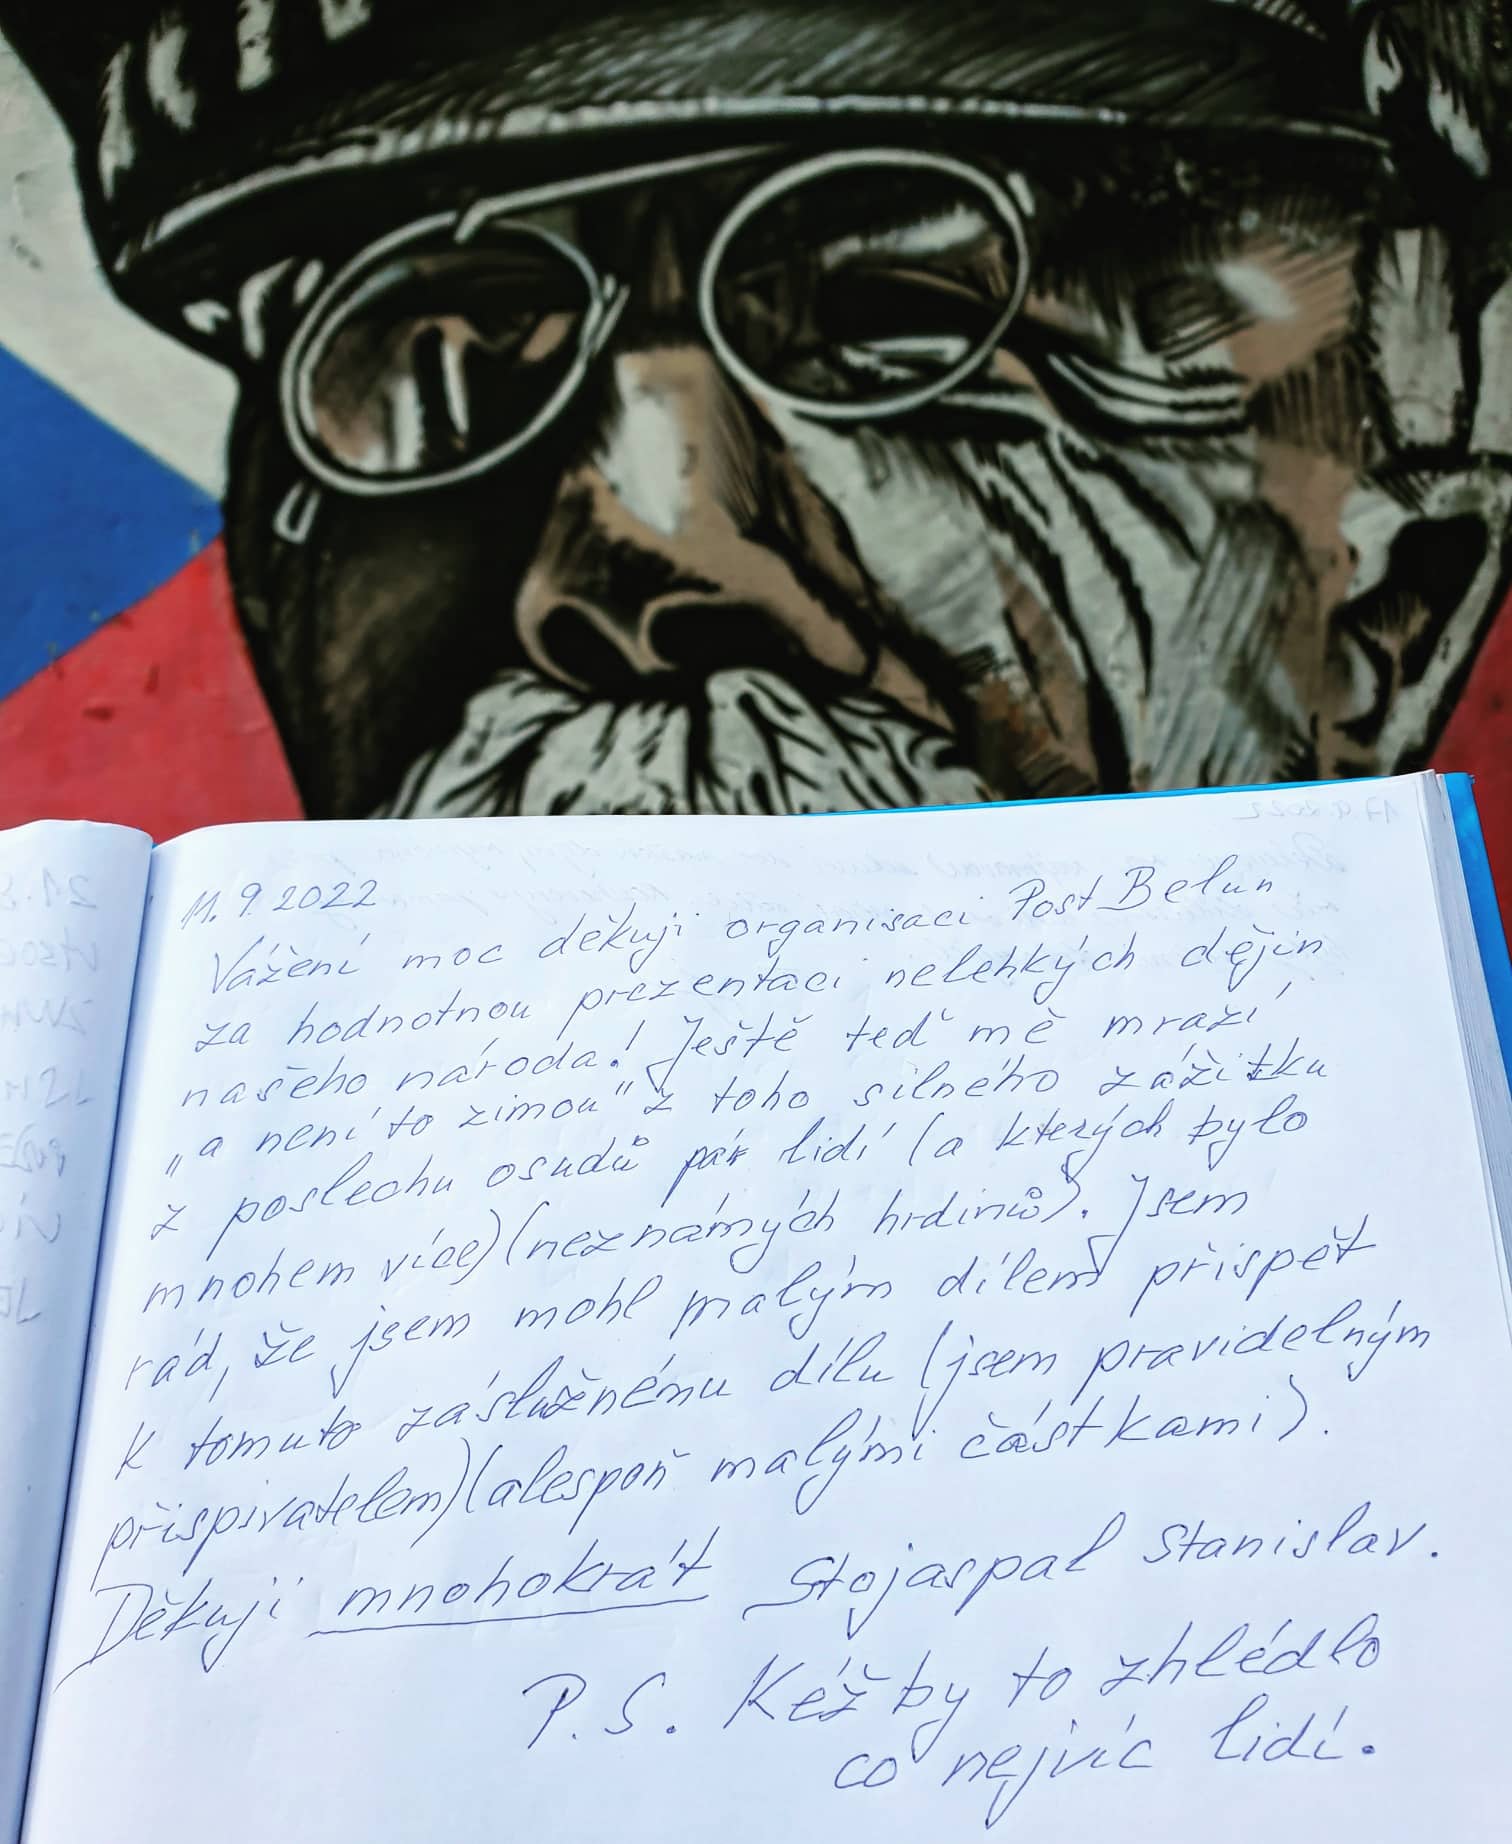 11.9.2022
Vážení moc děkuji organisaci Post Belun
za hodnotnou prezentaci nelehkých dějin
našeho národa! Ještě teď mě mrazí
„a není to zimou" z toho silného zážitku
z poslechu osudů pár lidí (a kterých bylo
mnohem více)(neznámých hrdinů). Jsem
rád, že jsem mohl malým dílem přispět
k tomuto záslužnému dílu (jsem pravidelným
přispivatelem)(alespoň malými částkami).
Děkuji mnohokrát Stojaspal Stanislav.
P.S. Kéž by to zhlédlo
co nejvíc lidí.